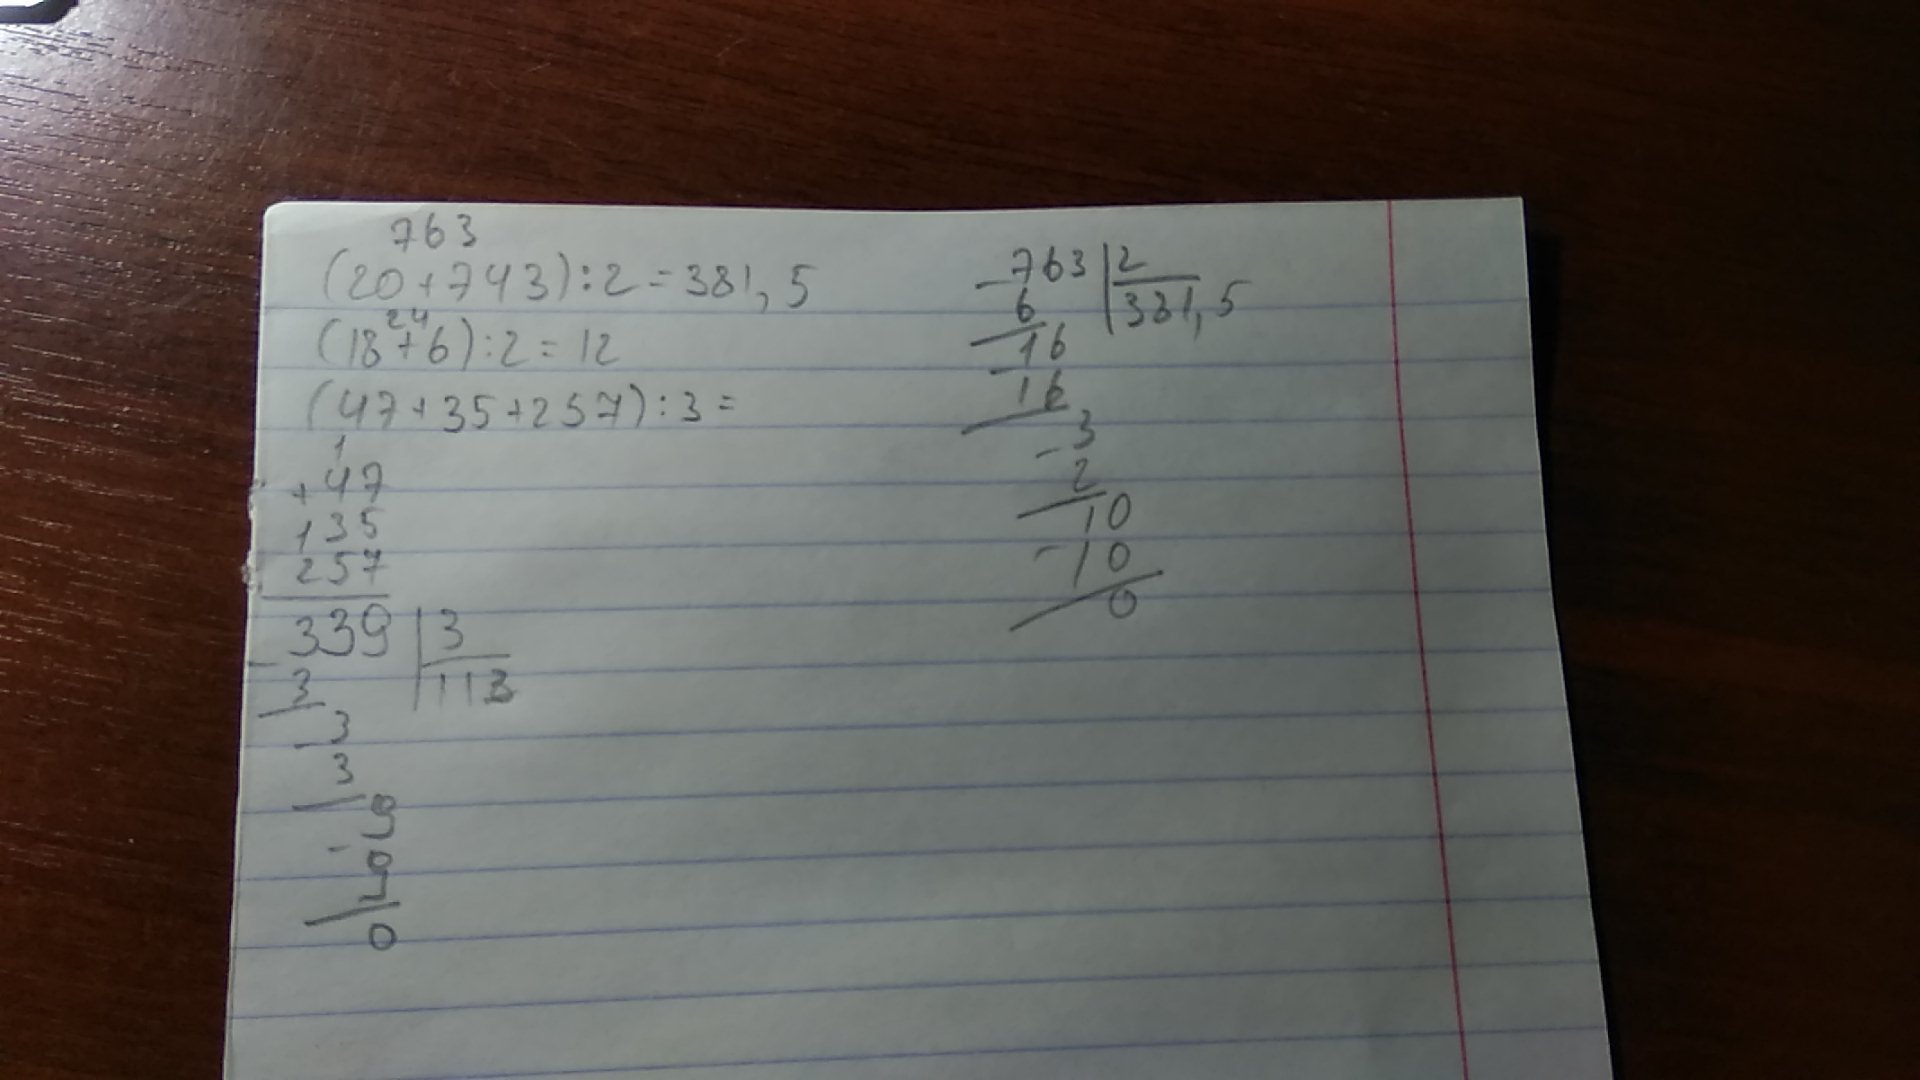 763
(20+743):2=381,5
24
(18+6):2=12
(47+35+257):3=
1
+47
+35
257
339 | 3
-3 | 113
-3
3
-9
9
0
-763 | 2
6 | 381,5
-16
16
-3
2
-10
10
0